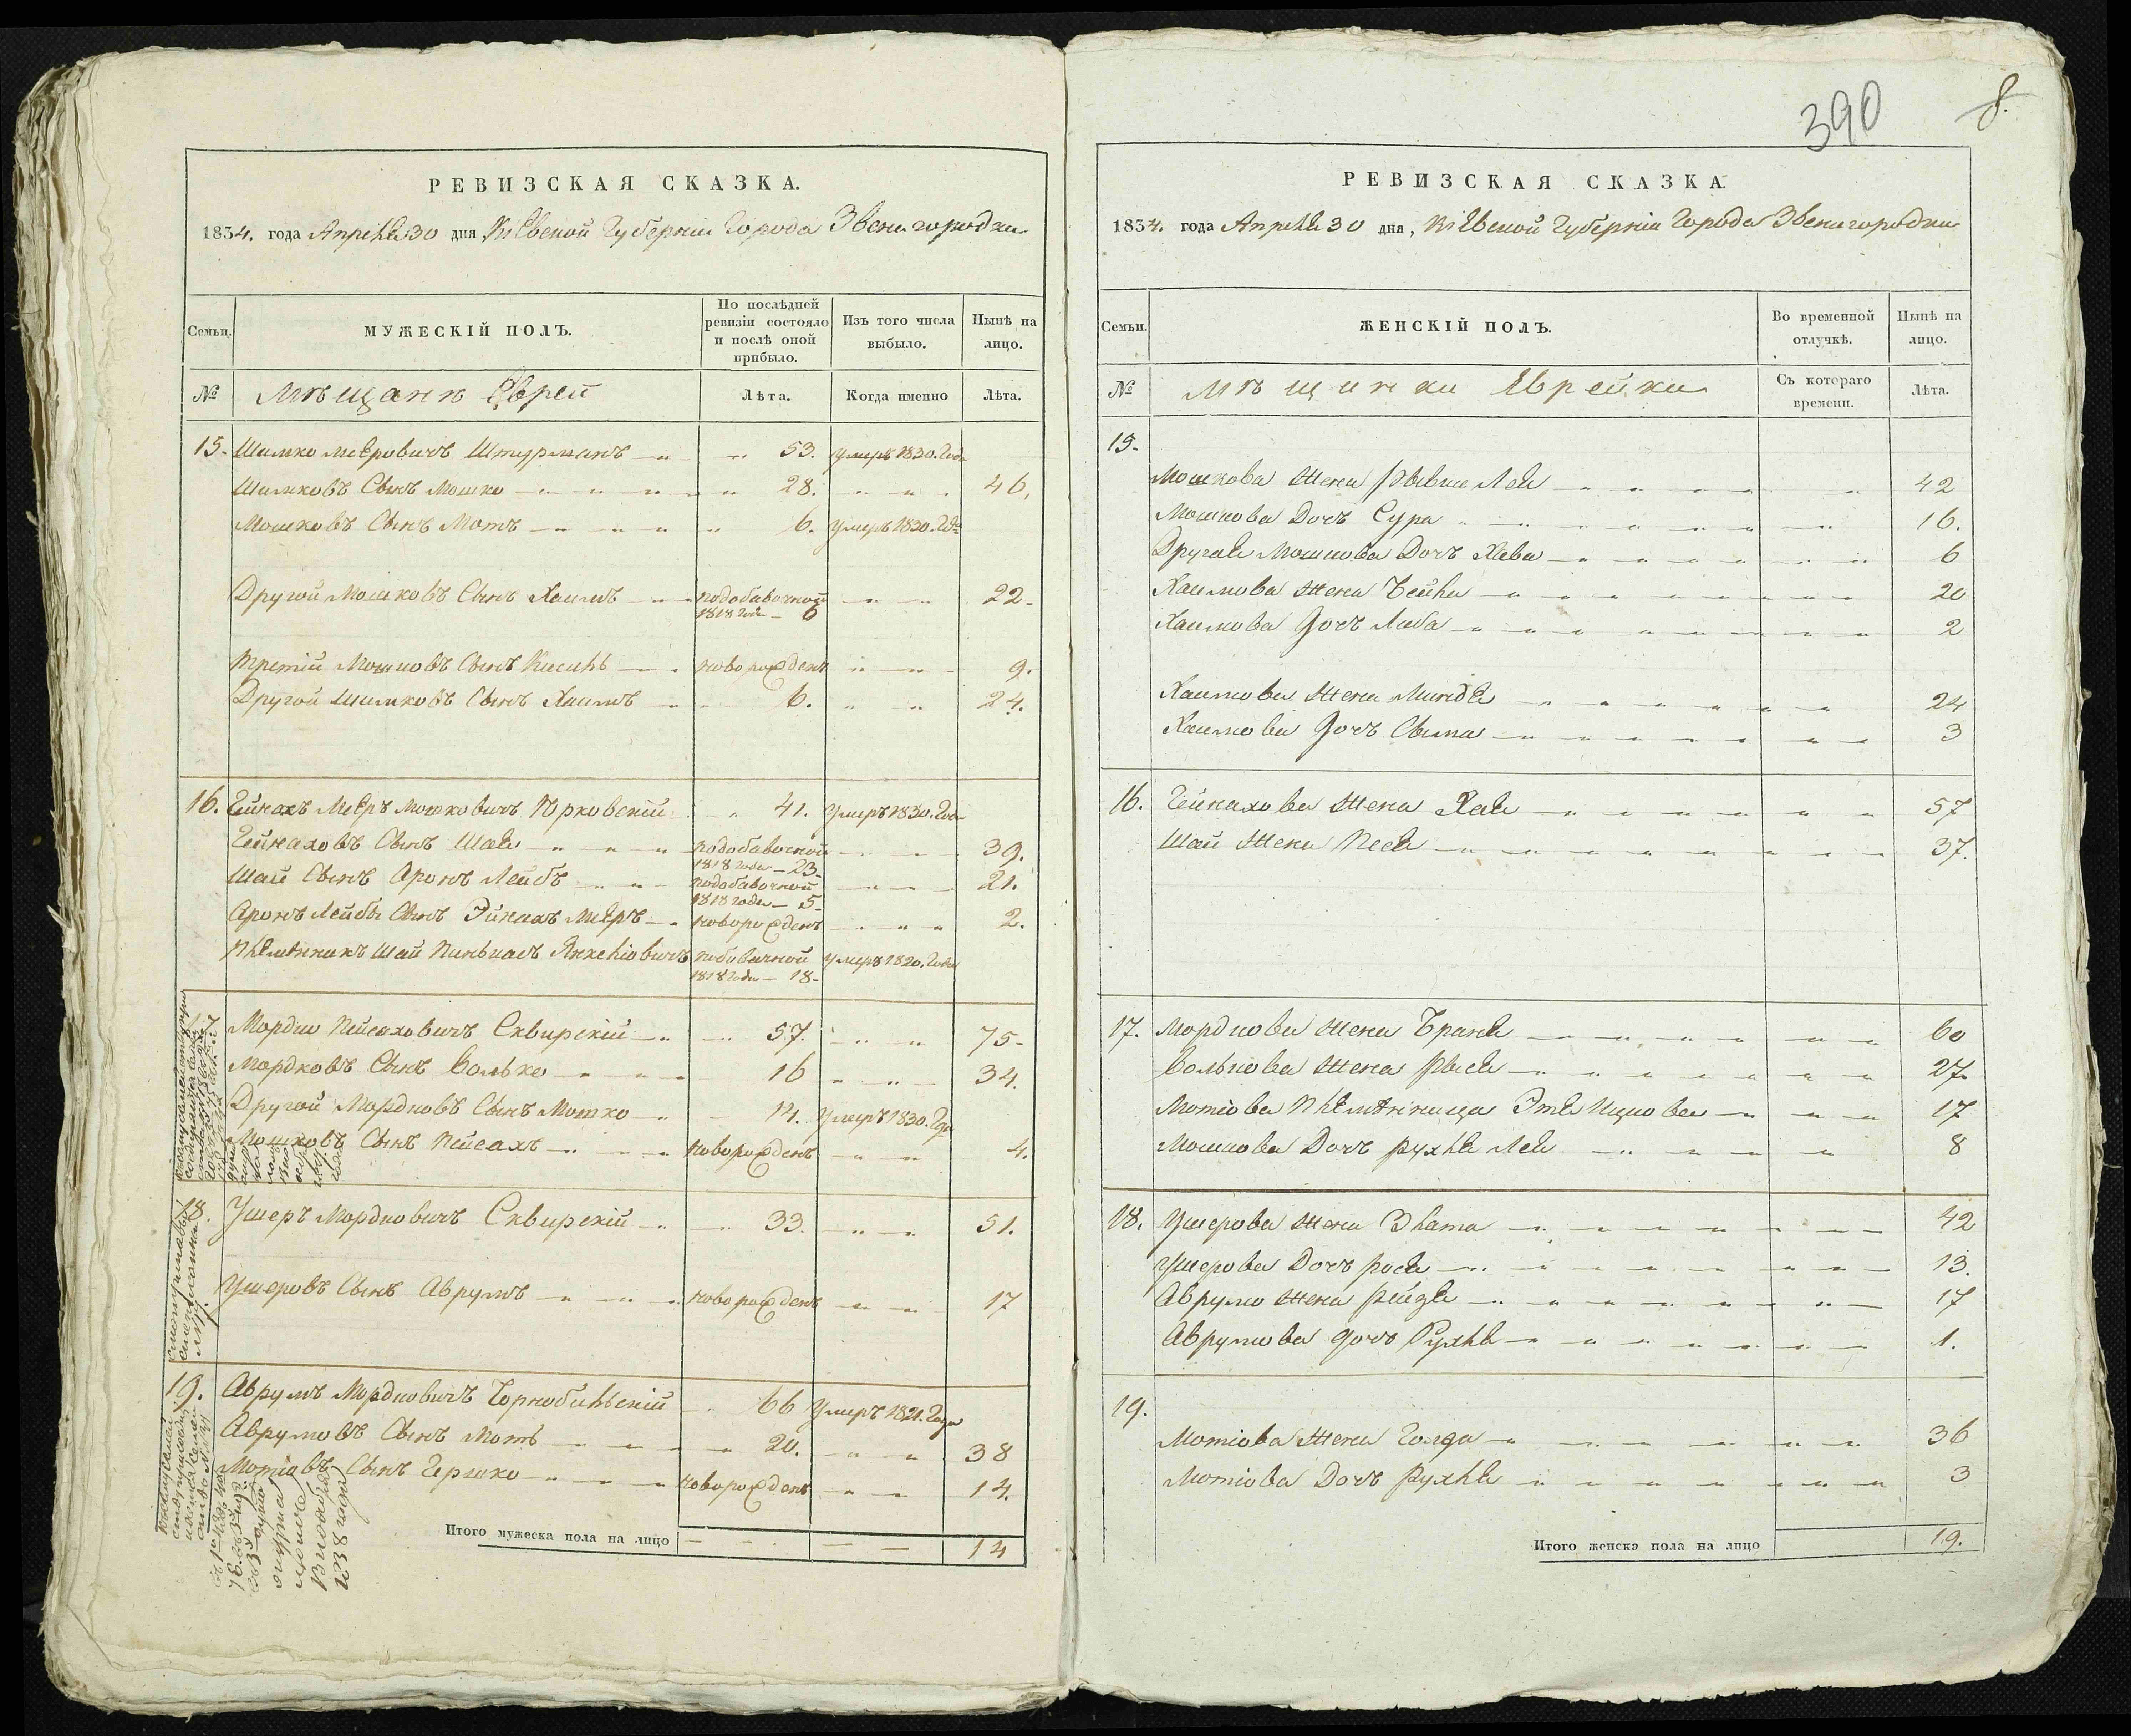 390
8.
РЕВИЗСКАЯ СКАЗКА.
1834. года Апреля 30 дня Кіевской Губерніи Города Звенигородки
Семьи.
МУЖЕСКІЙ ПОЛЪ.
По послѣдней ревизіи состояло и послѣ оной прибыло.
Изъ того числа выбыло.
Нынѣ на лицо.
№ Мѣщанѣ Евреи Лѣта. Когда именно Лѣта.
15. Шимко Меѣровичъ Штурманъ 53. умеръ 1830. Года
Шимковъ Сынъ Мошко 28. 46.
Мошковъ Сынъ Мотъ 6. умеръ 1830. Года
Другой Мошковъ Сынъ Хаимъ подобавочной 22.
1818 года 6
Третій Мошковъ Сынъ новорожденъ 9.
Другой Шимковъ Сынъ Хаимъ 6. 24.
16. Гейнахъ Меѣръ Мошковичъ 41. Умеръ 1830. Года
Гейнаховъ Сынъ Шая подобавочной 39.
1818 года 23
Шаи Сынъ Аронъ Лейбъ подобавочной 21.
1818 года 5
Аронъ Лейбы Сынъ Эйнахъ Меѣръ новорожденъ 2.
Племянникъ Шаи Пиньхасъ Янкеліовичъ умеръ 1820. Года
1818 года 18
17 Мордко Пейсаховичъ Сквирскій 57. 75
Мордковъ Сынъ Волько 16 34.
Другой Мордковъ Сынъ Мошко 14. Умеръ 1830. Года
Мошковъ Сынъ Пейсахъ новорожденъ 4.
18. Ушеръ Мордковичъ Сквирскій 33. 51.
Ушеровъ Сынъ Аврумъ новорожденъ 17
19. Аврумъ Мордковичъ Чорнобильскій 66 Умеръ 1821. Года
Аврумовъ Сынъ Моть 20. 38
Мотіовъ Сынъ Гершко новорожденъ 14.
Итого мужеска пола на лицо 14
РЕВИЗСКАЯ СКАЗКА
1834. года Апреля 30 дня, Кіевской Губерніи Города Звенигородки
Семьи.
ЖЕНСКІЙ ПОЛЪ.
Во временной отлучкѣ.
Нынѣ на лицо.
№ Мѣщанки Еврейки Съ котораго времени. Лѣта.
15.
Мошкова Жена Лея 42
Мошкова Дочь Сура 16.
Другая Мошкова Дочь Хева 6
Хаимова Жена Бейла 20
Хаимова Дочь Либа 2
Хаимова Жена Миндя 24
Хаимова Дочь Сима 3
16. Гейнахова Жена Хая 57
Шаи Жена Песя 37.
17. Мордкова Жена Браня 60
Волькова Жена Рыся 27
Мотіова Племянница Этя Ицкова 17
Мошкова Дочь Рухля Лея 8
18. Ушерова Жена Злата 42
Ушерова Дочь Рося 13.
Аврумо Жена Рейзя 17
Аврумова Дочь Рухля 1.
19.
Мотіова Жена Голда 36
Мотіова Дочь Рухля 3
Итого женска пола на лицо 19.